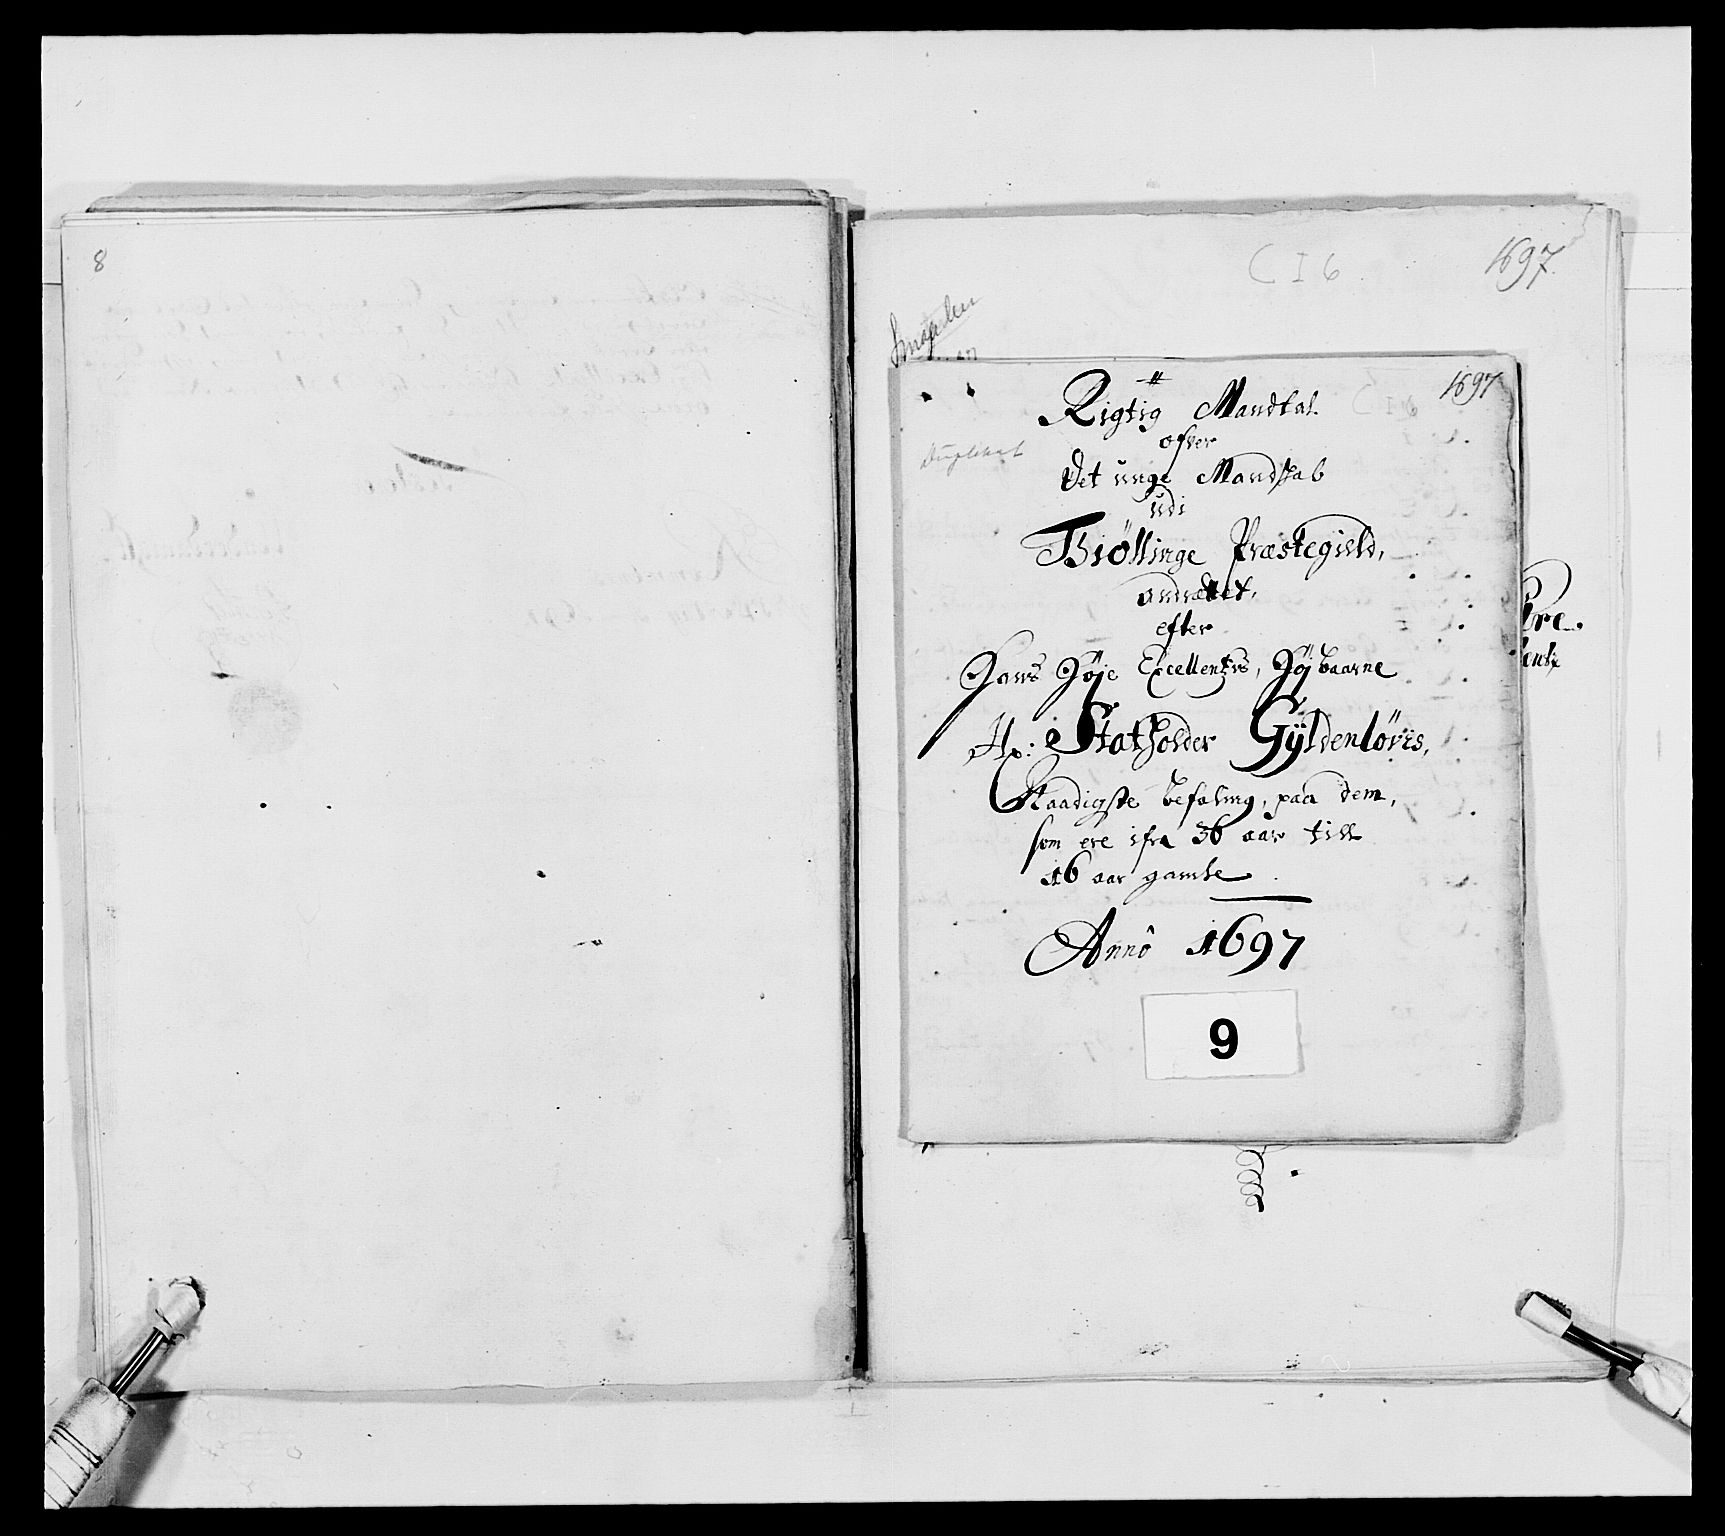 8
C I 6
1697
1697
Rigtig Mandtal
ofver
Duplikat
Det unge Mandskab
udi
Tiøllinge Præstegield,
andrettet,
efter
Hans Høje Excellentzes, Høybaarne
Hr: Statholder Gÿldenlöves,
Naadigste befaling, paa dem,
som ere ifra 36 aar till
16 aar gamle
Annô 1697
9